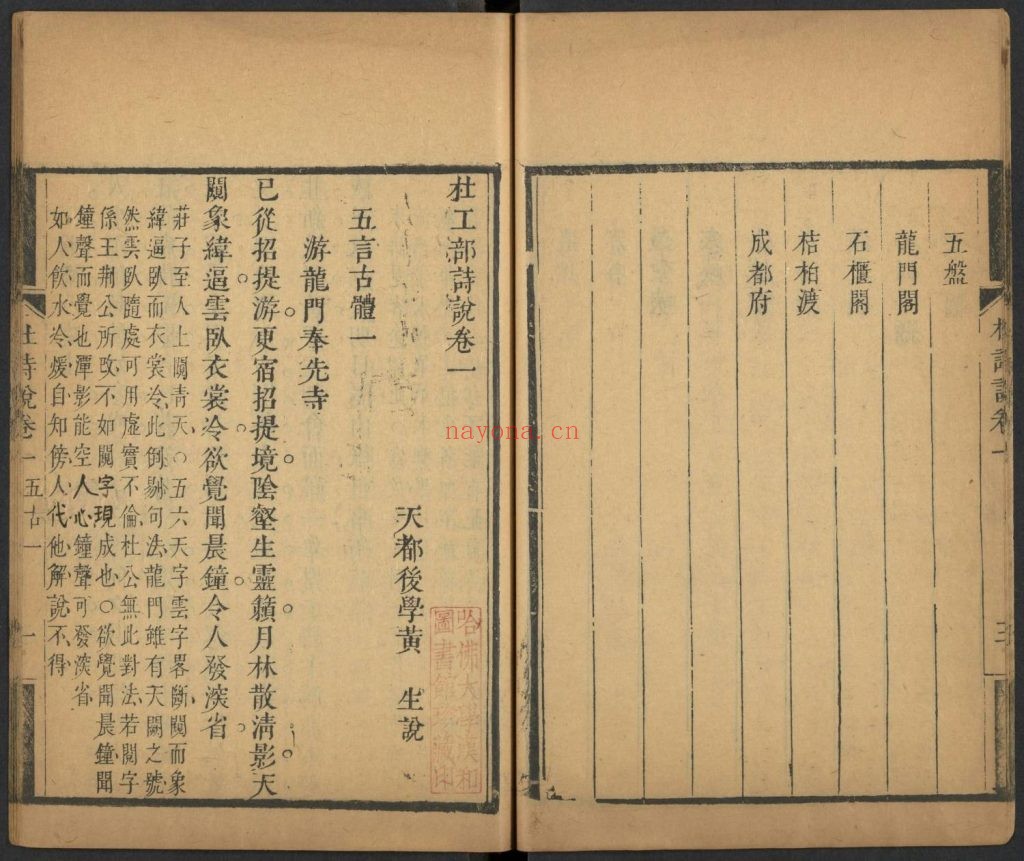 五盤
龍門閣
石櫃閣
桔柏渡
成都府
杜詩說卷一
杜工部詩說卷一
天都後學黃　生說
五言古體一
游龍門奉先寺
已從招提游更宿招提境陰壑生靈籟月林散清影天
闚象緯逼雲臥衣裳冷欲覺聞晨鐘令人發深省
莊子至人上闚青天○五六天字雲字畧斷闚而象
緯逼臥而衣裳冷此倒剔句法龍門雖有天闕之號
然雲臥隨處可用虛實不倫杜公無此對法若閱字
係王荊公所改不如闚字現成也○欲覺聞晨鐘聞
鐘聲而覺也潭影能空人心鐘聲可發深省
如人飲水冷煖自知傍人代他解說不得
杜詩說卷一　五古一　一
哈佛大學漢和
圖書館珍藏印
nayona.cn